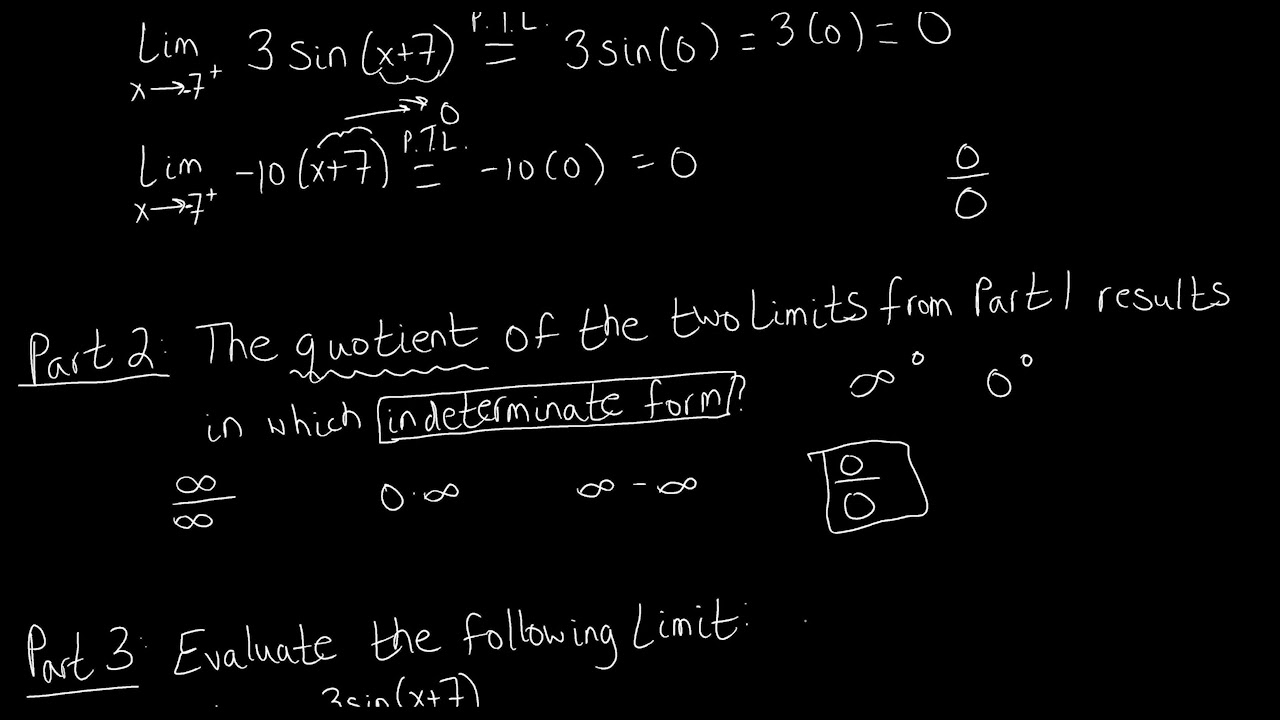 Lim x→-7⁺ 3 sin (x+7) P.T.L. = 3 sin(0) = 3(0) = 0
→ 0
Lim x→-7⁺ -10 (x+7) P.T.L. = -10(0) = 0
0/0
Part 2: The quotient of the two Limits from Part 1 results
in which indeterminate form? ∞⁰ 0⁰
∞/∞ 0·∞ ∞-∞ 0/0
Part 3: Evaluate the following Limit:
3sin(x+7)